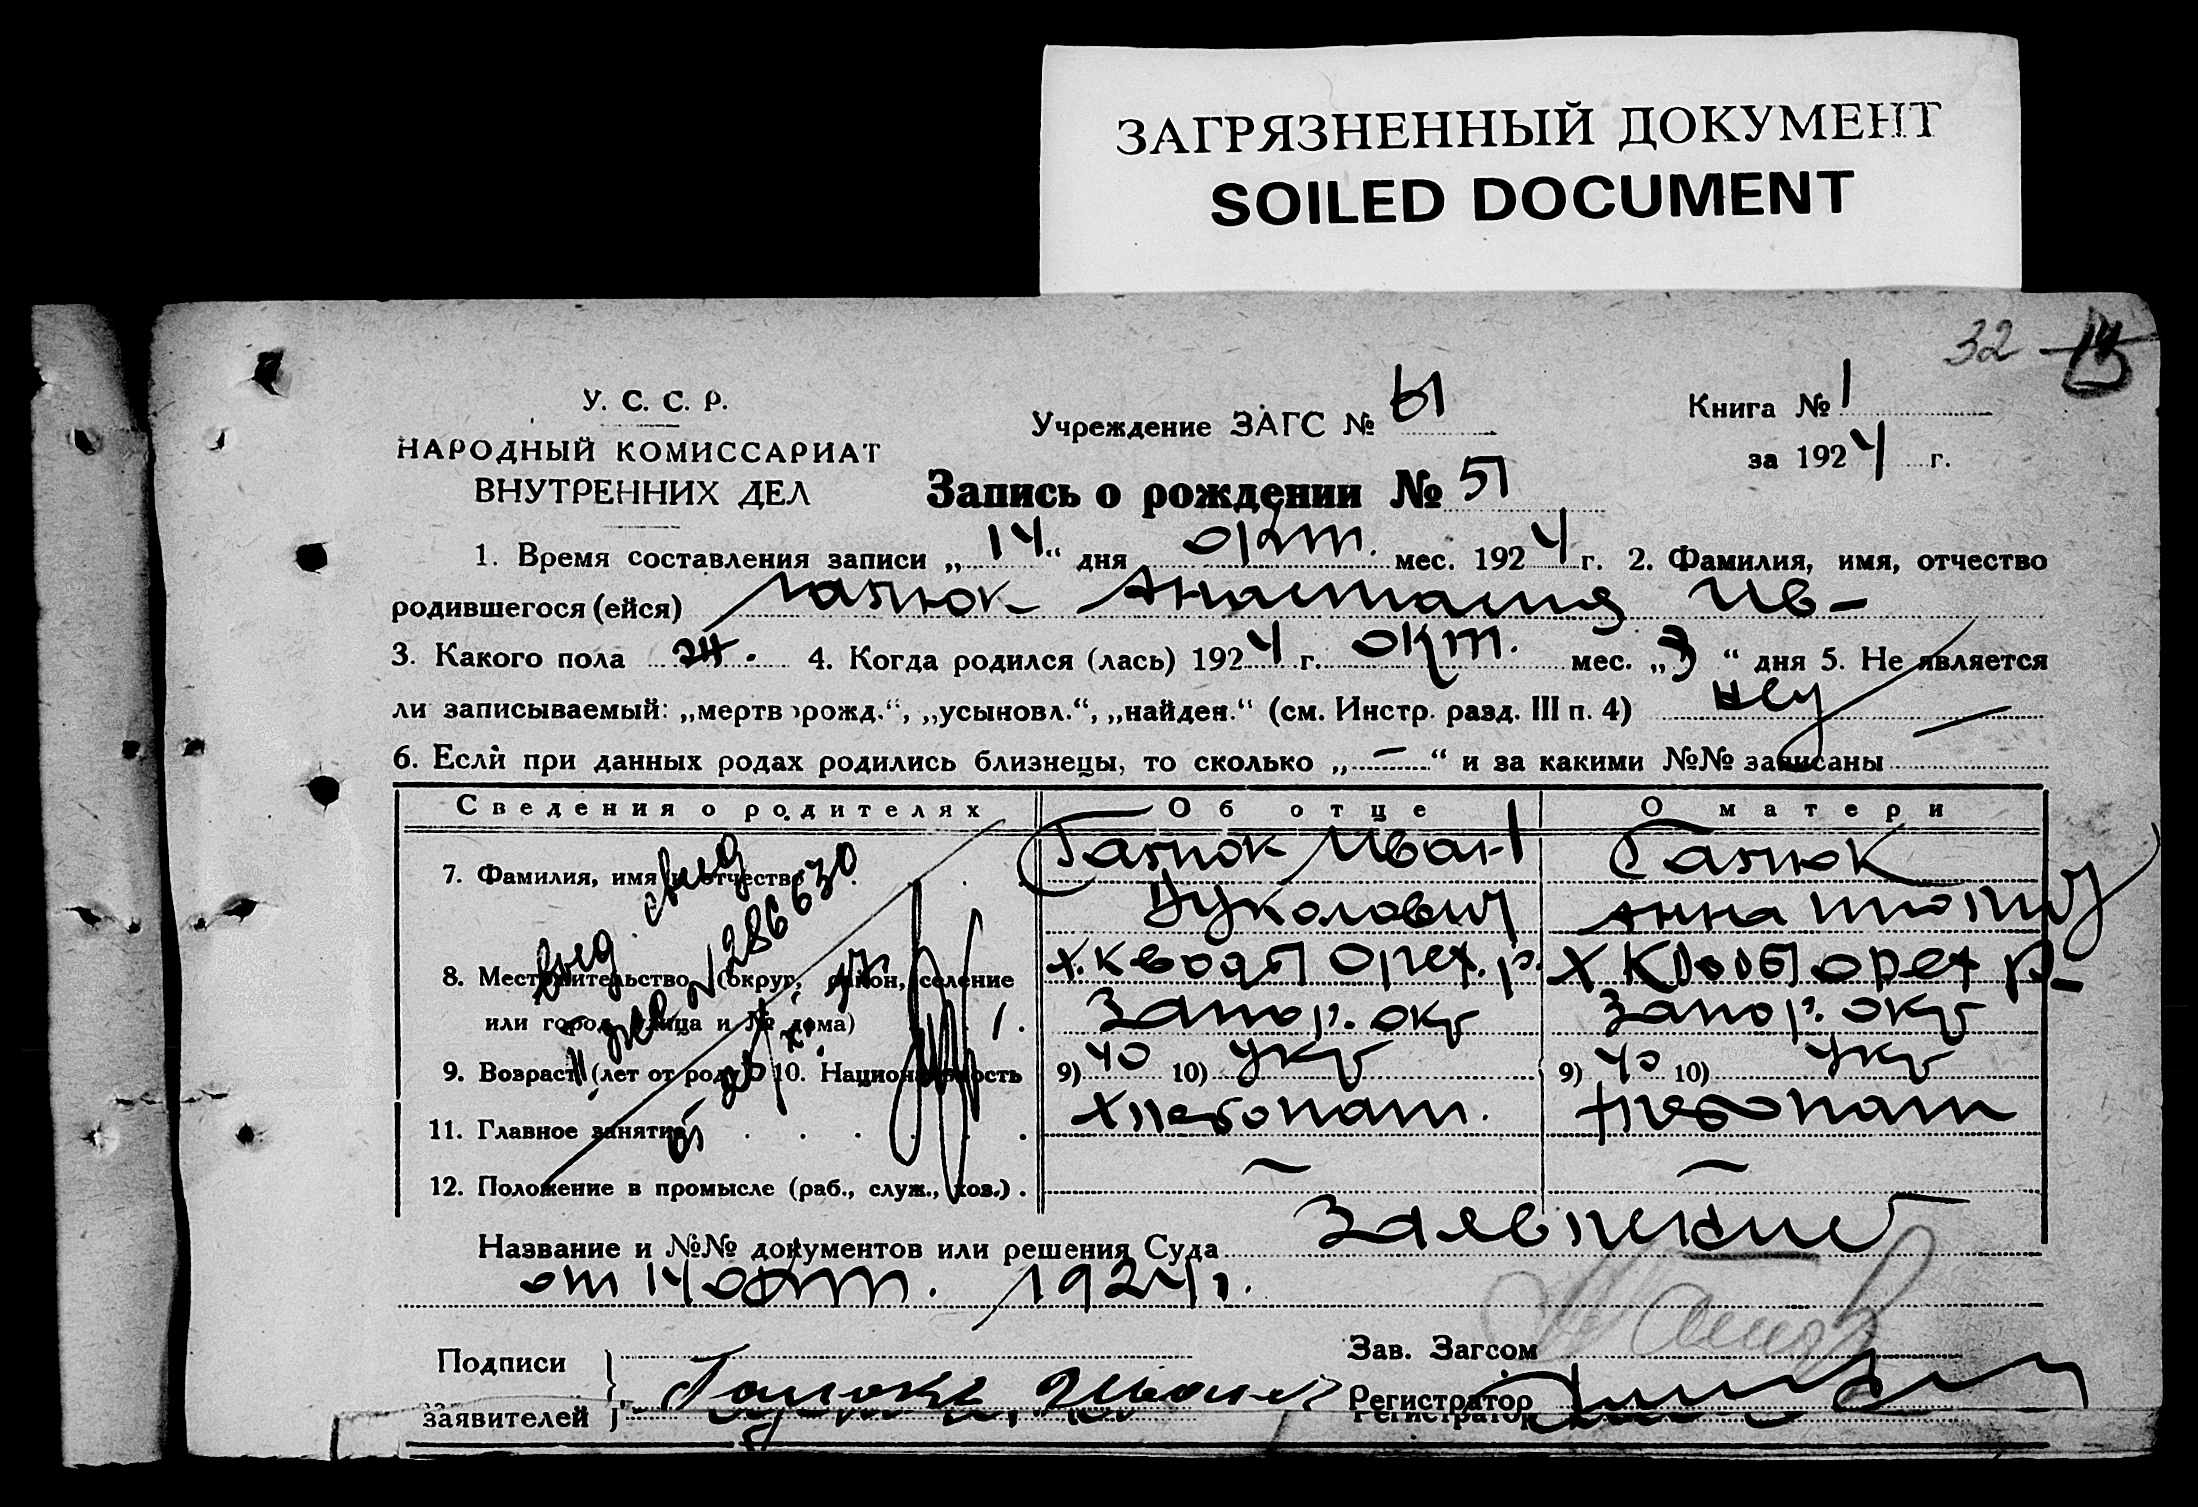 ЗАГРЯЗНЕННЫЙ ДОКУМЕНТ
SOILED DOCUMENT
32
У. С. С. Р.
НАРОДНЫЙ КОМИССАРИАТ
ВНУТРЕННИХ ДЕЛ
Учреждение ЗАГС №
Книга № 1
за 1924 г.
Запись о рождении № 51
1. Время составления записи „14“ дня окт. мес. 1924 г. 2. Фамилия, имя, отчество
родившегося (ейся) Галюк Анастасия Ив-
3. Какого пола ж. 4. Когда родился (лась) 1924 г. окт. мес. „3“ дня 5. Не является
ли записываемый: „мертворожд.“, „усыновл.“, „найден.“ (см. Инстр. разд. III п. 4) нет
6. Если при данных родах родились близнецы, то сколько „—“ и за какими №№ записаны —
Сведения о родителях Об отце О матери
7. Фамилия, имя и отчество Галюк Иван Галюк
Цуколович Анна
8. Местожительство (округ, район, селение х. Орех. р. х Орех р-
или город, улица и № дома) Запор. окр Запор. окр
9. Возраст (лет от роду) 10. Национальность 9) 40 10) укр 9) 40 10) укр
11. Главное занятие хлебопаш. хлебопаш
12. Положение в промысле (раб., служ., хоз.) — —
286630
Название и №№ документов или решения Суда Заявление
от 14 окт. 1924 г.
Подписи
заявителей Галюк Иван
Зав. Загсом
Регистратор